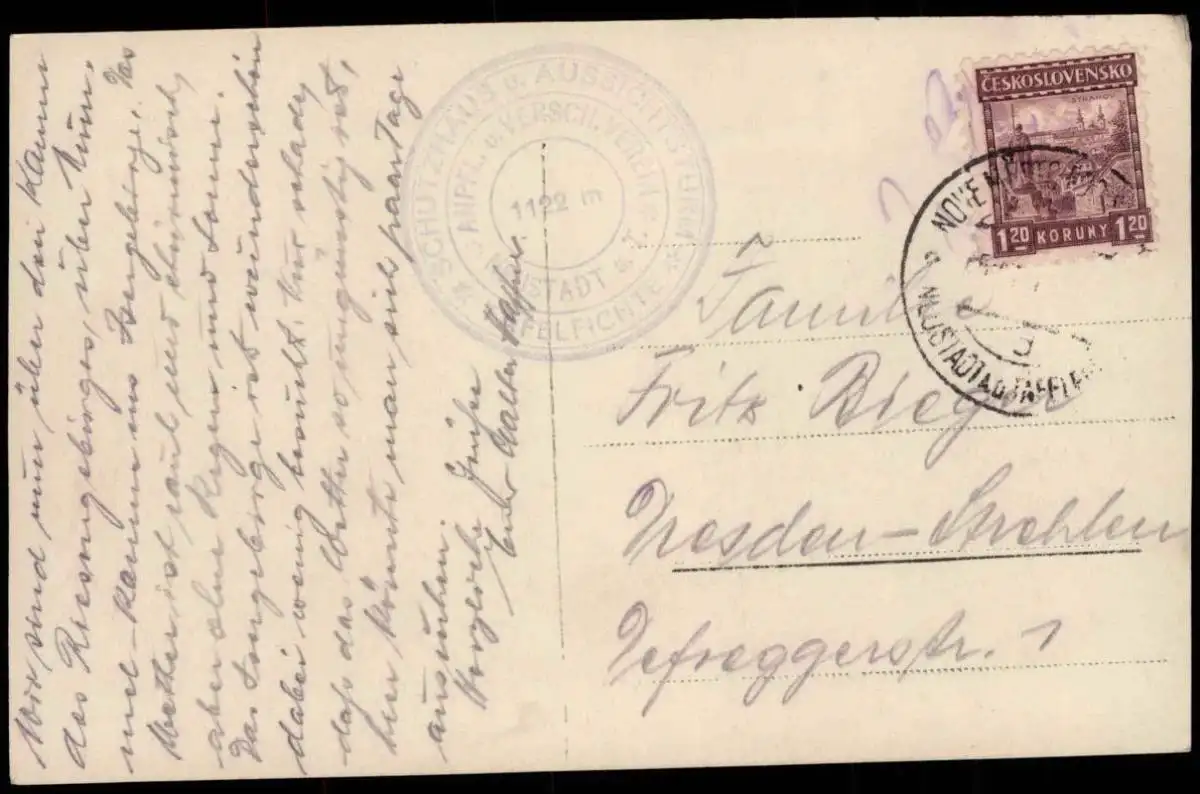 Wir sind nun über den Kamm
des Riesengebirges, über Kum-
mel-Kamm ins Isergebirge. Das
Wetter ist kalt und stürmisch,
aber ohne Regen und Sonne.
Das Isergebirge ist wunderschön
dabei wenig besucht. Nur schade,
daß das Wetter so ungünstig ist,
hier könnte man sich paar Tage
ausruhen.
Herzliche Grüße
Euer Walter
SCHUTZHAUS u. AUSSICHTSTURM
ANPFL. u. VERSCH. VEREIN
1122 m
NEUSTADT a. T.
TAFELFICHTE
ČESKOSLOVENSKO
STRAHOV
1 20 KORUNY 1 20
NOVÉ MĚSTO
NEUSTADT A.D. TAFELF
Familie
Fritz Bieger
Dresden-Strehlen
Defreggerstr. 1